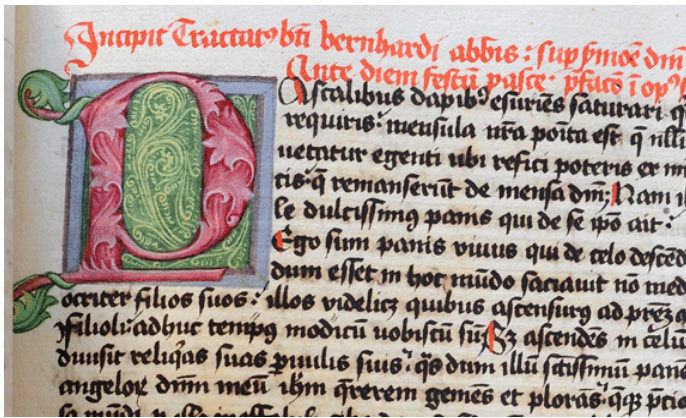 Incipit Tractatꝰ bti bernhardi abbis : sup ẏmōē dm
Ante diem festū pasce · pfacō ī opꝰ
PAscalibus dapibꝰ esuriēs saturari q
requiris : mensula nr̄a poīta est q̄ nlli
uetatur egenti ubi refici poteris ex mi
tis · q̄ remanserūt de mensa dm̄ : Nam il
le dulcissimꝯ panis qui de se ipō ait :
Ego sum panis viuus qui de celo descēd
dum esset in hoc mūdo saciauit nō med
ocriter filios suos : illos videlicz quibus ascensurꝯ ad prēz a
Filioli : adhuc tempꝯ modicū vobiscū sū Sz ascendēs in celū
diuisit reliq̄as suas ꝑuulis suis : q̄s dum illū sc̄issimū panē
angeloꝝ dn̄m meū ihm̄ q̄rerem gemēs et ploras · q̄qꝫ